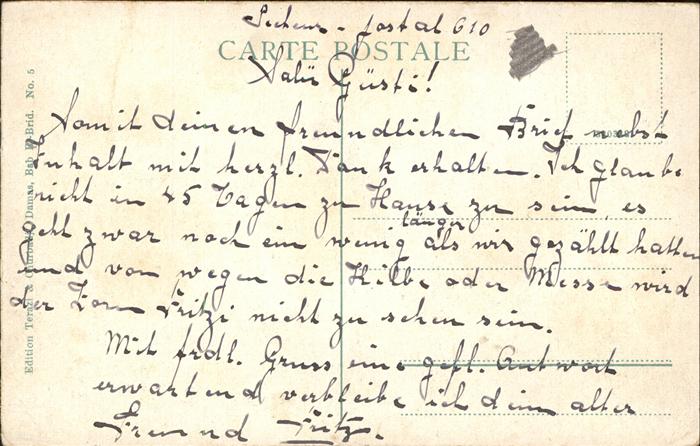 Secteur - postal 610
CARTE POSTALE
Salü Güsti!
Somit deinen freundlichen Brief nebst
Inhalt mit herzl. Dank erhalten. Ich glaube
nicht in 45 Tagen zu Hause zu sein, es
geht zwar noch ein wenig länger als wir gezählt hatten
und von wegen die Hilbe oder Messe wird
der Zorn Fritzi nicht zu sehen sein.
Mit frdl. Gruss eine gefl. Antwort
erwartend verbleibe ich dein alter
Freund Fritz.
Edition Terazi & Damas, Bab El-Brid. No. 5